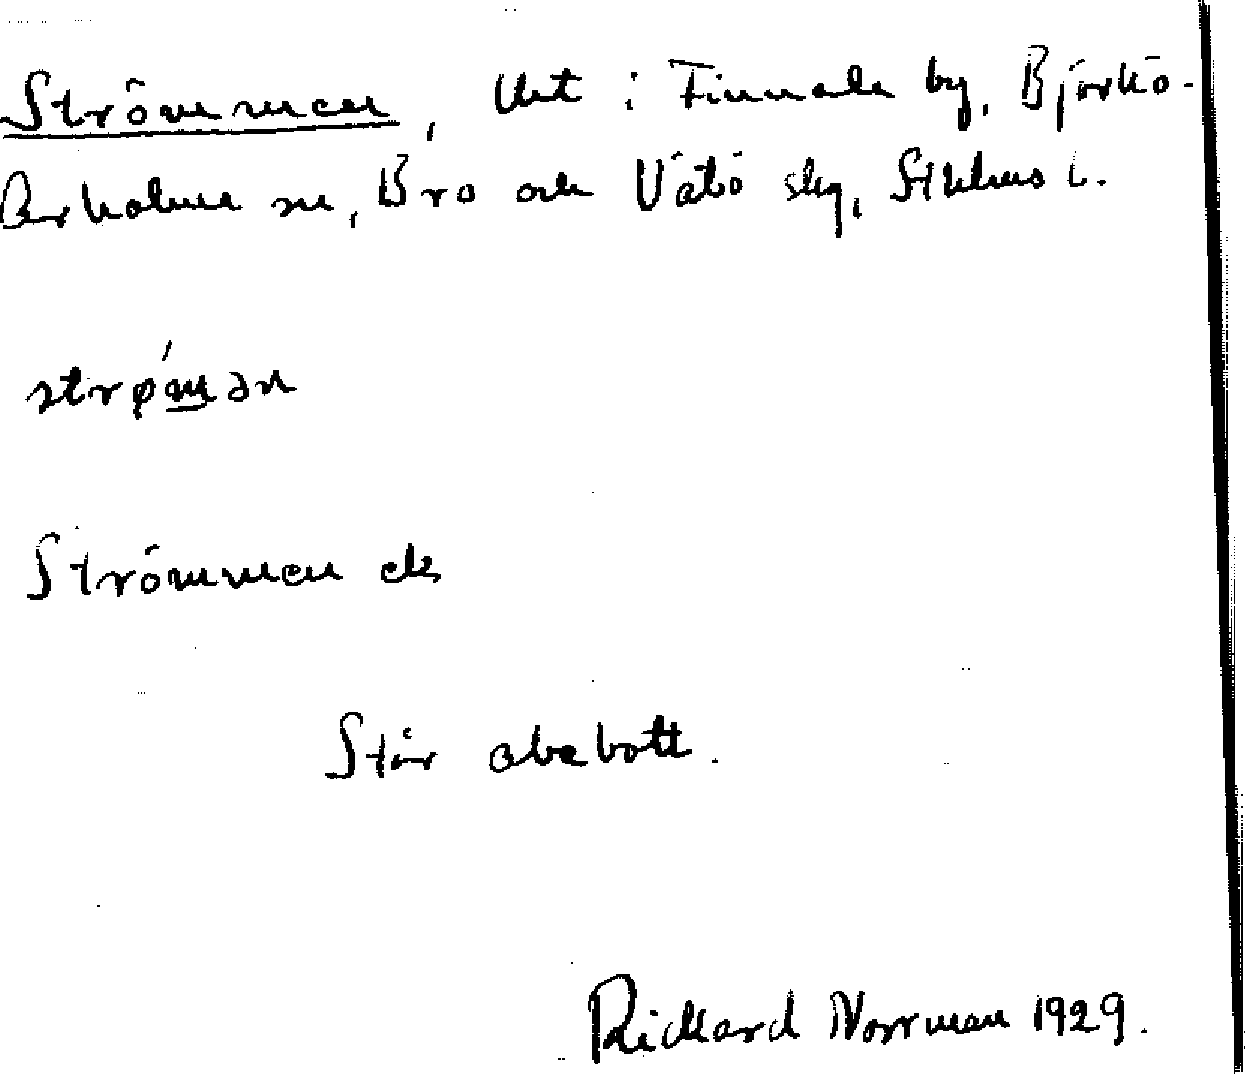 Strömmen, lht i Finnala by, Björkö-
Arholma sn, Bro och Vätö skg, Sthlms l.
strǿm̲ən
Strömmen ek
Står obebott.
Rickard Norrman 1929.